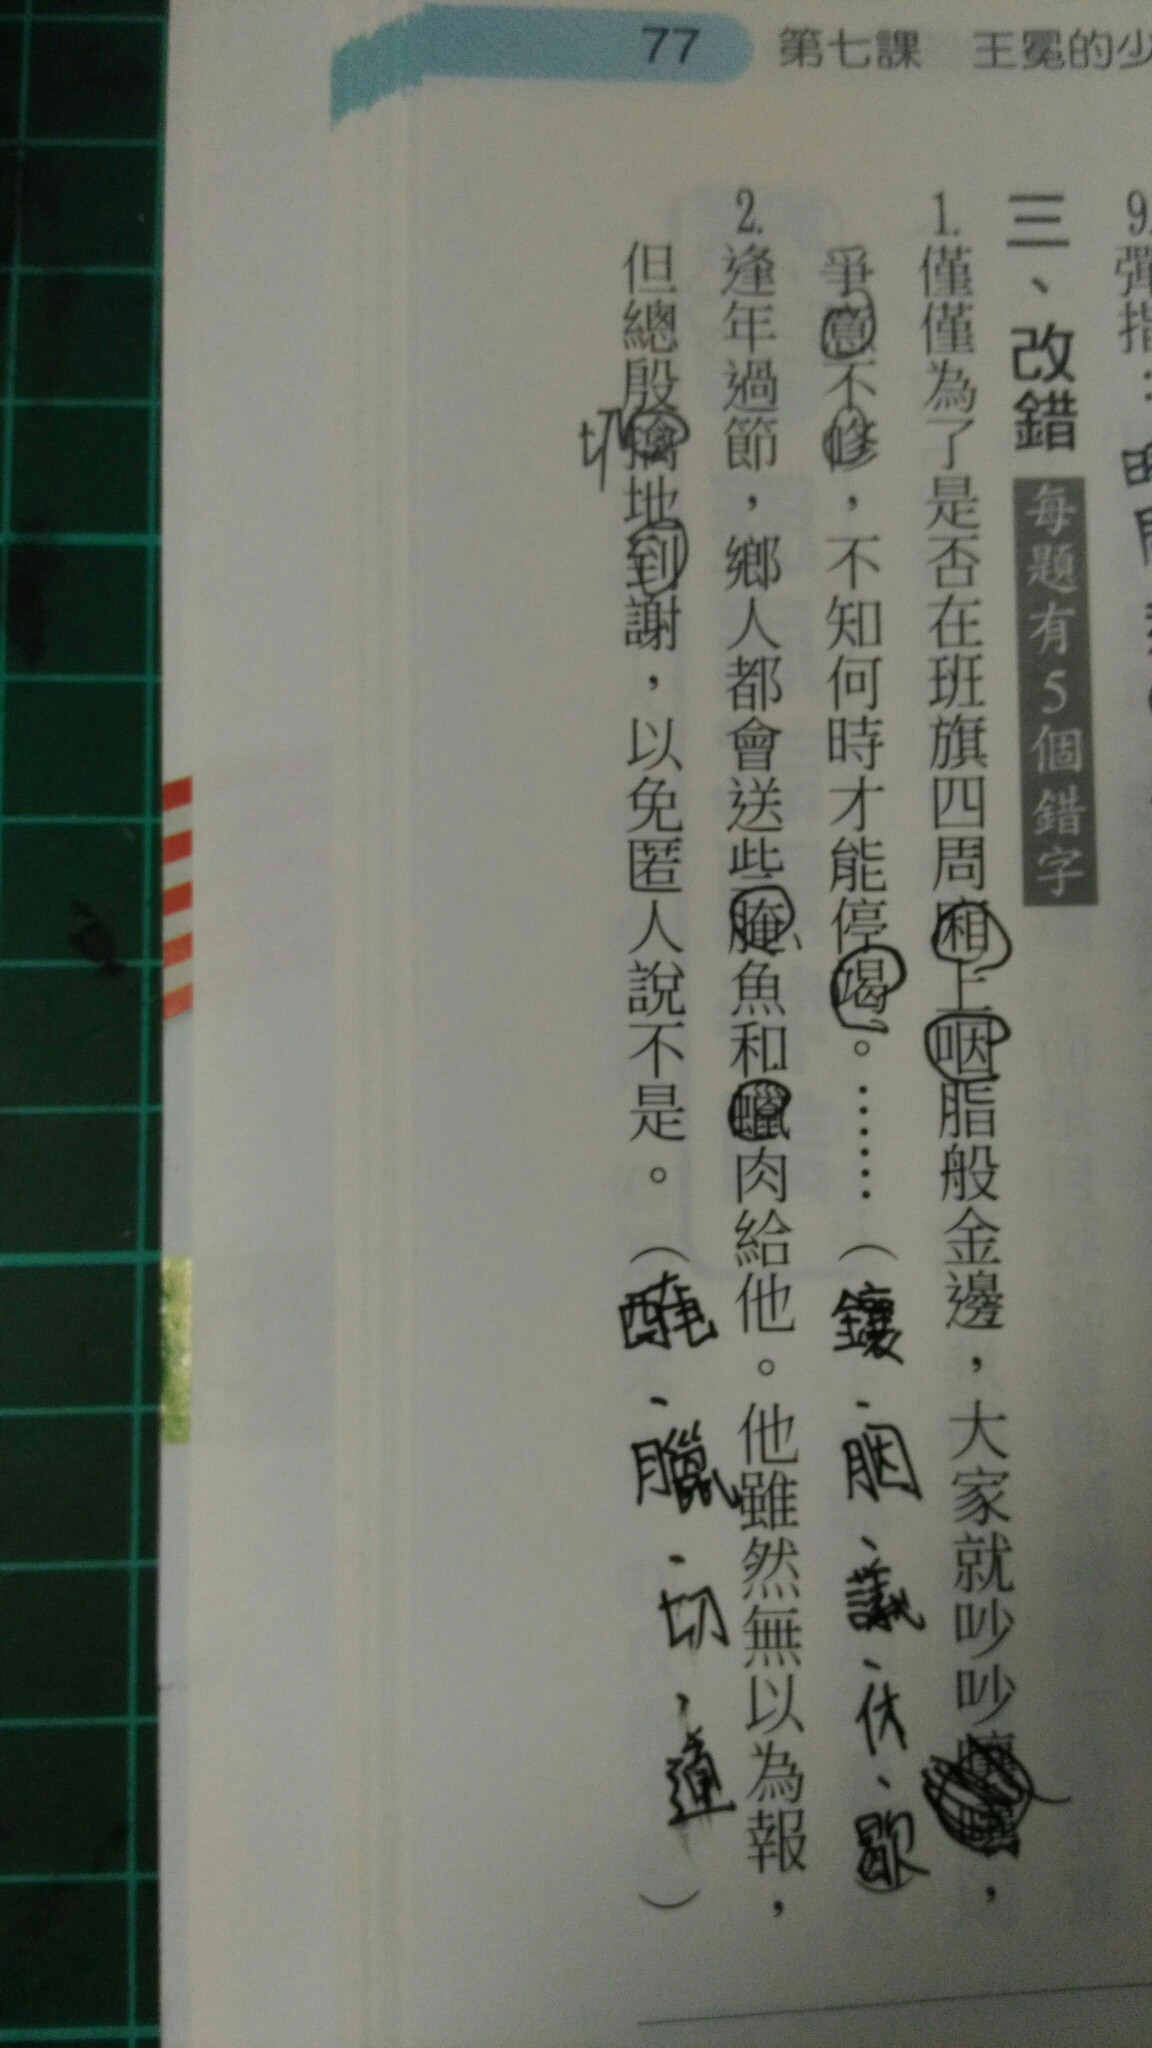 77 第七課 王冕的少
9. 彈指：
三、改錯 每題有5個錯字
1. 僅僅為了是否在班旗四周廂上咽脂般金邊，大家就吵吵
爭意不修，不知何時才能停竭。……（鑲、胭、議、休、歇）
2. 逢年過節，鄉人都會送些腌魚和蠟肉給他。他雖然無以為報，
但總殷擒地到謝，以免匿人說不是。（醃、臘、切、道 ）
切